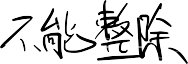 不能整除